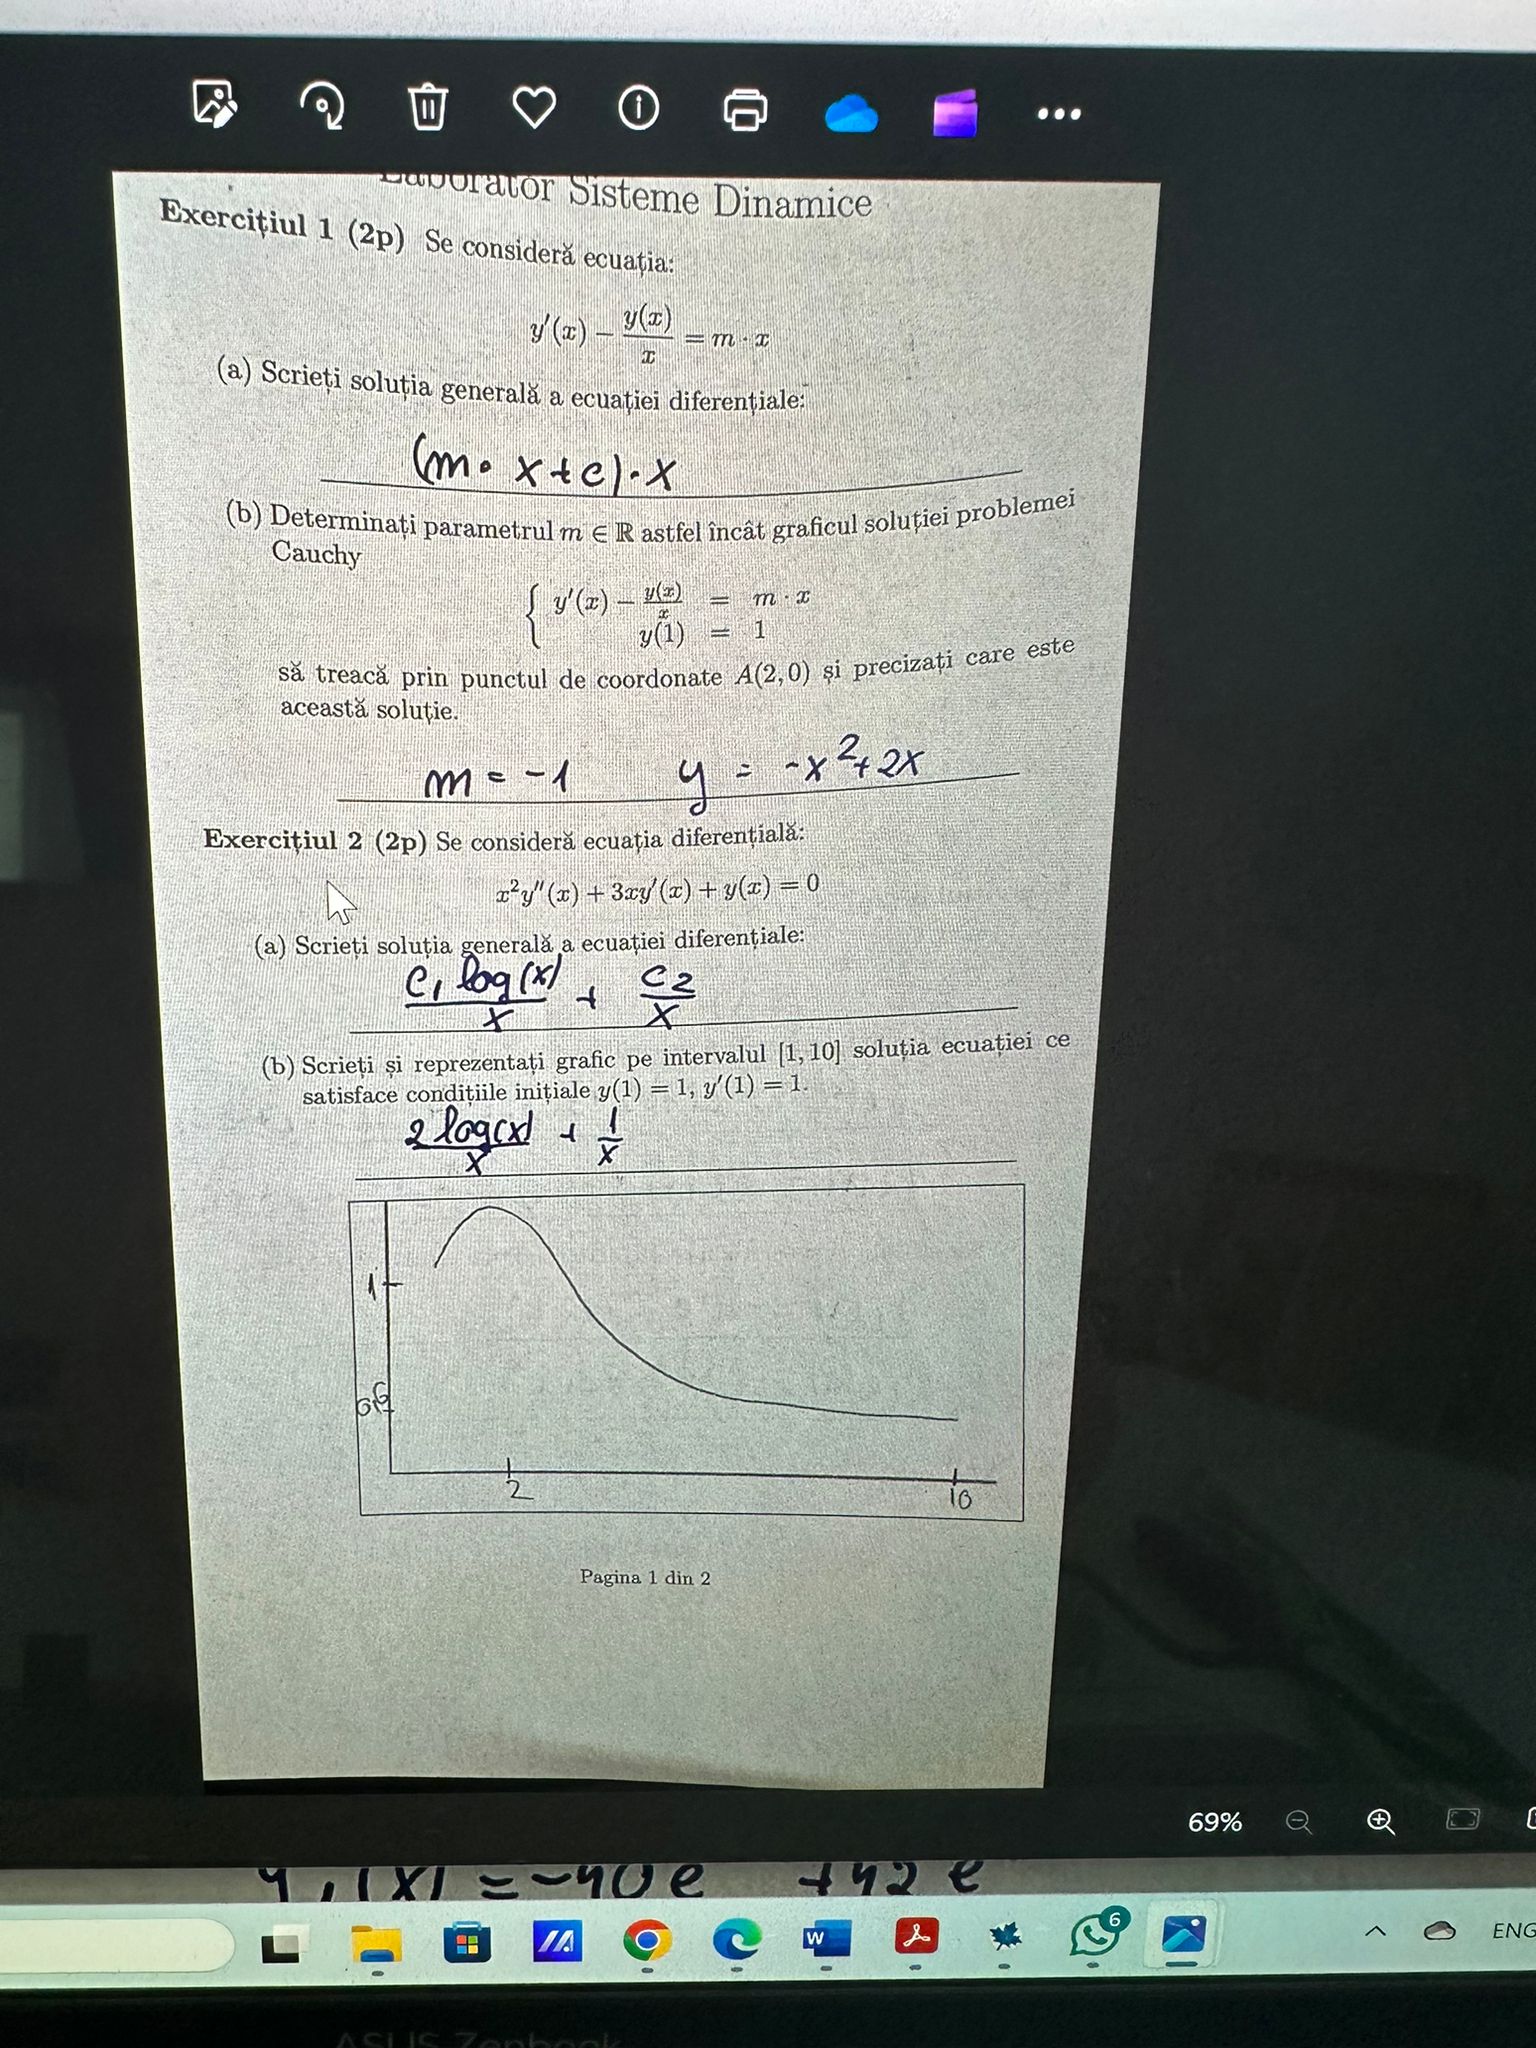 Laborator Sisteme Dinamice
Exercițiul 1 (2p) Se consideră ecuația:
y'(x) − y(x)/x = m · x
(a) Scrieți soluția generală a ecuației diferențiale:
(m · x + c) · x
(b) Determinați parametrul m ∈ ℝ astfel încât graficul soluției problemei
Cauchy
{ y'(x) − y(x)/x = m · x
y(1) = 1
să treacă prin punctul de coordonate A(2, 0) și precizați care este
această soluție.
m = -1 y = -x² + 2x
Exercițiul 2 (2p) Se consideră ecuația diferențială:
x²y''(x) + 3xy'(x) + y(x) = 0
(a) Scrieți soluția generală a ecuației diferențiale:
c₁ log(x)/x + c₂/x
(b) Scrieți și reprezentați grafic pe intervalul [1, 10] soluția ecuației ce
satisface condițiile inițiale y(1) = 1, y'(1) = 1.
2 log(x)/x + 1/x
1
2
10
Pagina 1 din 2
69%
6
ENG
ASUS Zenbook